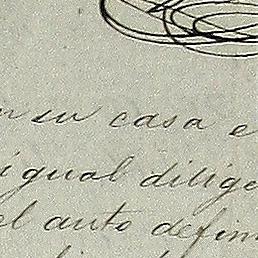 en su casa e
igual dilige
el auto defini